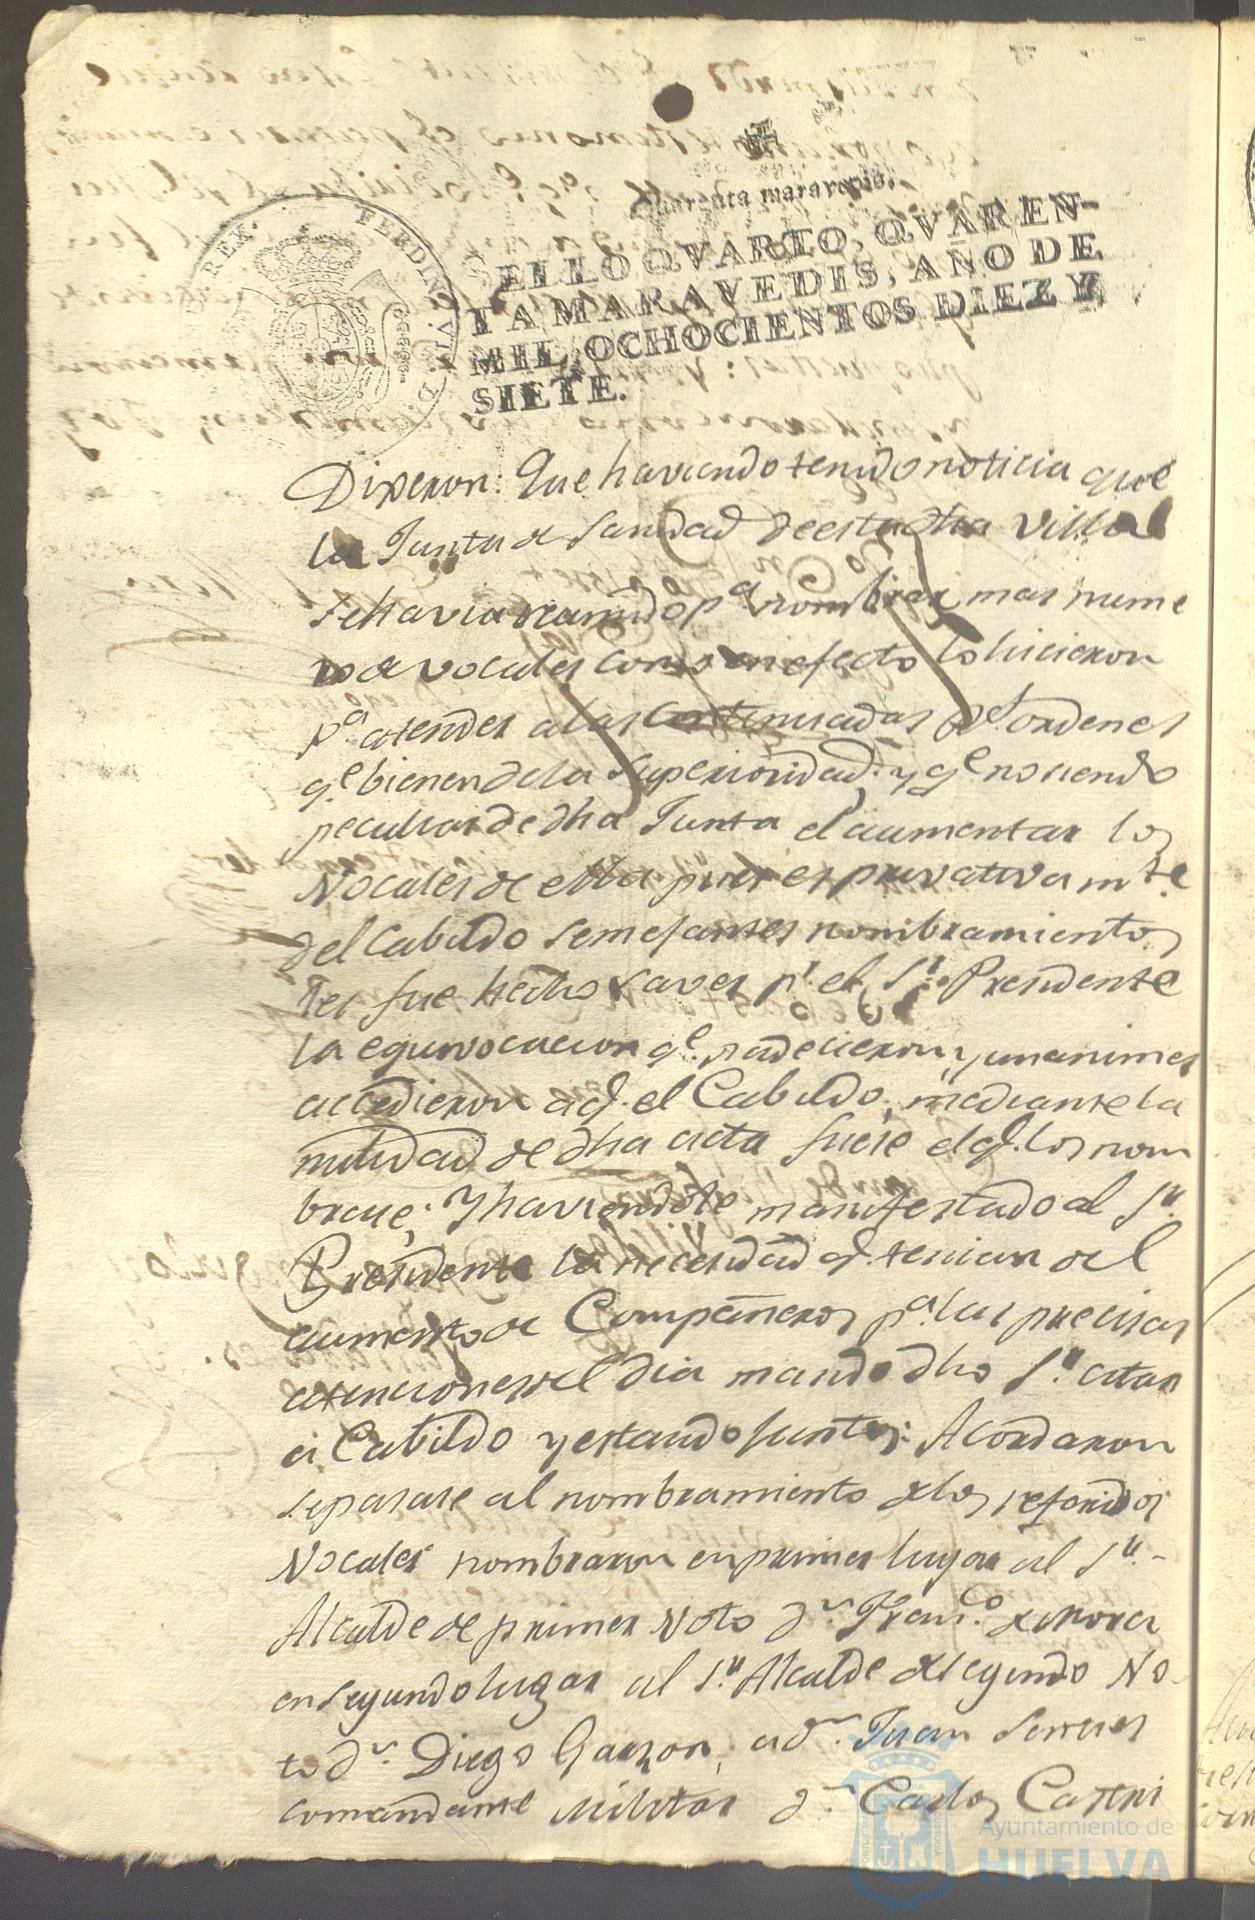 Quarenta maravedis.
SELLO QVARTO, QVAREN-
TA MARAVEDIS, AÑO DE
MIL OCHOCIENTOS DIEZ Y
SIETE.
FERDIN. VII. D.
REX.
Dixeron: Que haviendo tenido noticia que
la Junta de Sanidad de esta dha Villa
se havia reunido pa. nombrar mas nume
ro de vocales como en efecto lo hicieron
pa. atender a las continuadas ordenes
qe. bienen de la Superioridad; y qe. no siendo
peculiar de dha Junta el aumentar los
Vocales de ella pues es privativamte.
del Cabildo semejantes nombramientos
les fue hecho saver pr. el Sr. Presidente
la equivocacion qe. padecieron, y unanimes
accedieron a q. el Cabildo, mediante la
nulidad de dha acta fuese el q. los nom
brase; Y haviendole manifestado al Sr.
Presidente la necesidad q. tenian del
aumento de Compañeros pa. las precisas
atenciones del dia mando dho Sr. citar
a Cabildo y estando juntos: Acordaron
se pasase al nombramiento de los referidos
Vocales nombraron en primer lugar al Sr.
Alcalde de primer Voto dn. Franco. de Mora
en segundo lugar al Sr. Alcalde de segundo Vo-
to dn. Diego Garzon, a dn. Juan
comandante Militar dn. Carlos
Ayuntamiento de
HUELVA